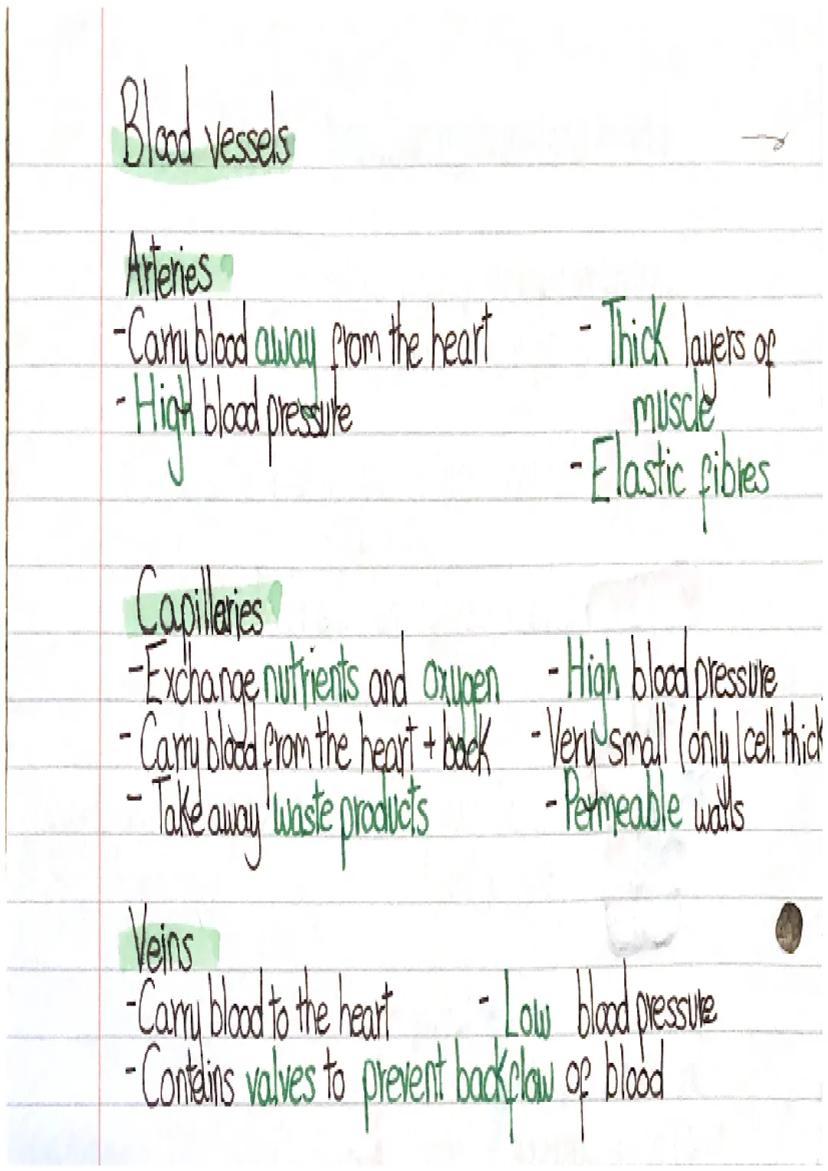 Blood vessels
Arteries
-Carry blood away from the heart
-High blood pressure
- Thick layers of
muscle
-Elastic fibres
Capilleries
-Exchange nutrients and oxygen
- Carry blood from the heart + back
- Take away waste products
-High blood pressure
-Very small (only 1 cell thick
-Permeable walls
Veins
-Carry blood to the heart
- Low blood pressure
-Contains valves to prevent backflow of blood